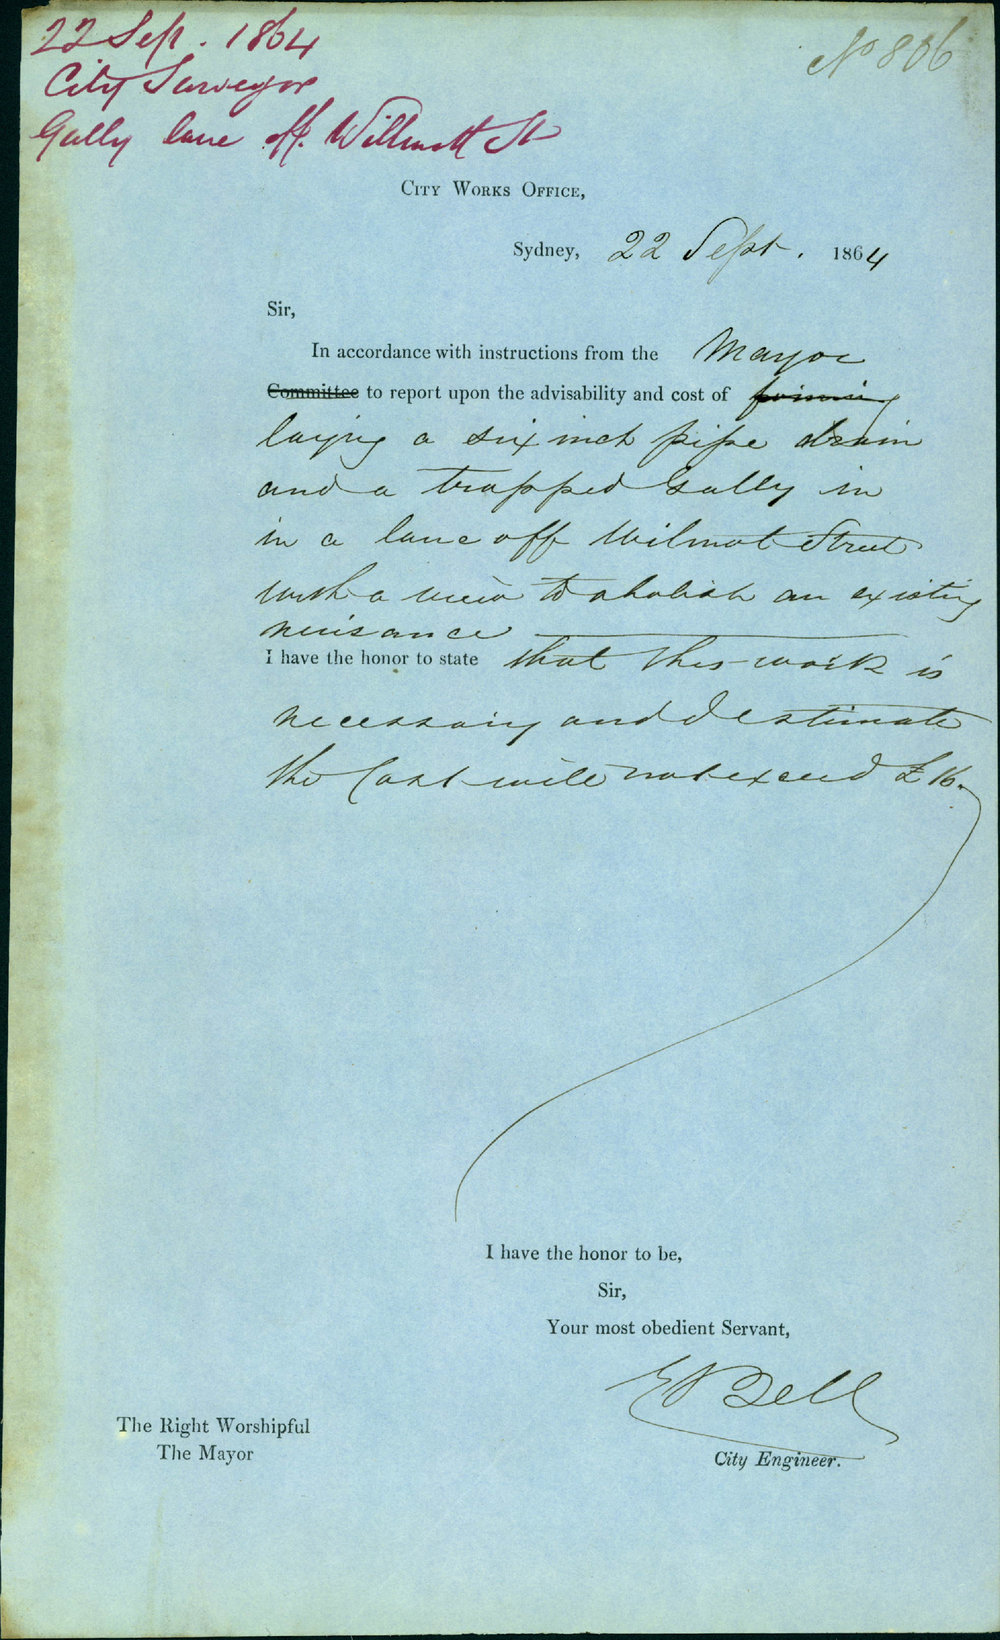 22 Sep. 1864
No 806
City Surveyor
Gully lane off. Willmott St
City Works Office,
Sydney, 22 Sept. 1864
Sir,
In accordance with instructions from the Mayor
Committee to report upon the advisability and cost of forming
laying a six inch pipe drain
and a trapped Gully in
in a lane off Wilmot Street
with a view to abolish an existing
nuisance
I have the honor to state that this work is
necessary and I estimate
the Cost will not exceed £16.
I have the honor to be,
Sir,
Your most obedient Servant,
E Bell
The Right Worshipful
The Mayor
City Engineer.